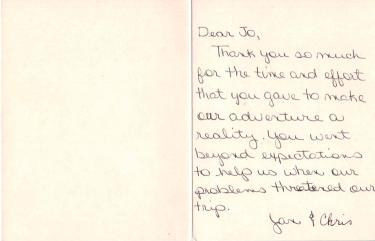 Dear Jo,
Thank you so much
for the time and effort
that you gave to make
our adventure a
reality. You went
beyond expectations
to help us when our
problems threatened our
trip.
Jan & Chris